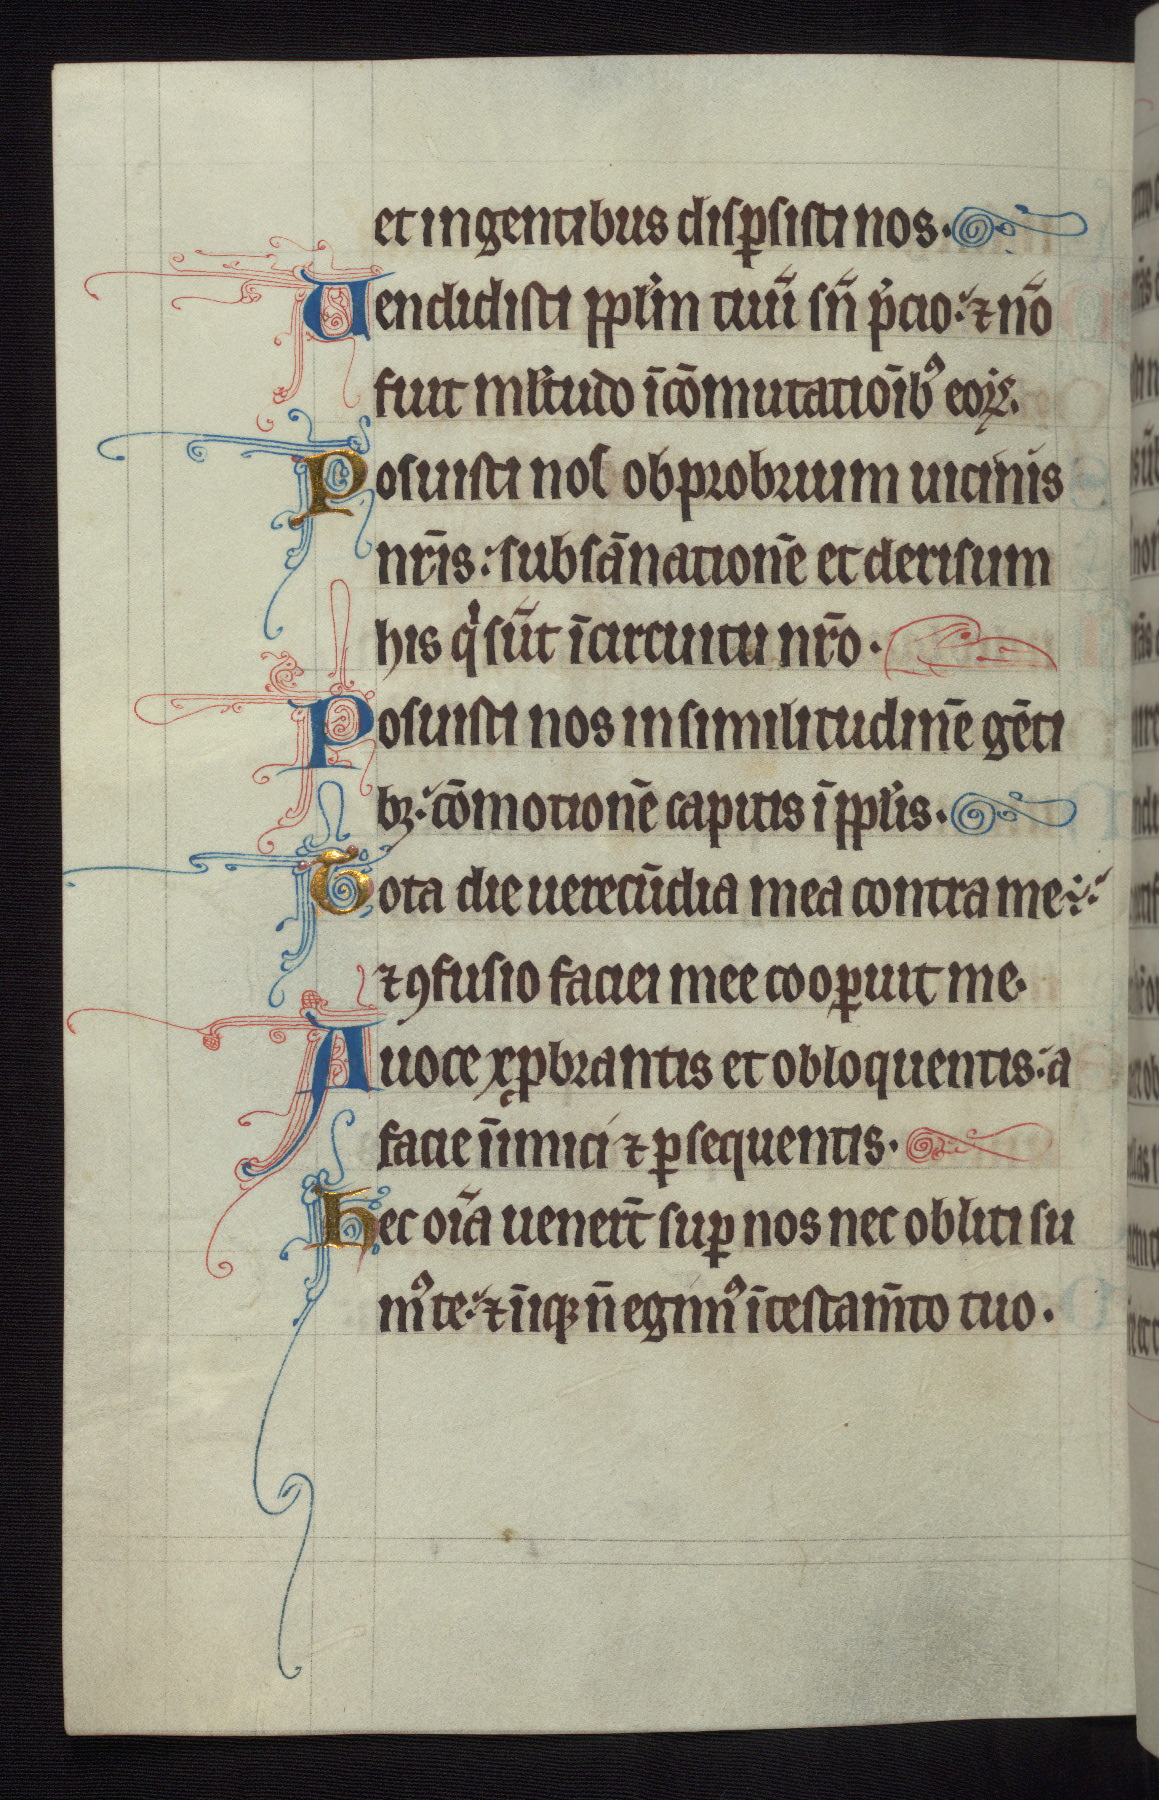 et in gentibus disꝑsisti nos.
Uendidisti ppl̄m tuū sn̄ p̄cio: ⁊ nō
fuit ml̄titudo ī cōmutatiōibꝰ eoꝝ.
Posuisti nos obprobrium uicinis
nr̄is: subsānationē et derisum
his qͥ sūt ī circuitu nr̄o.
Posuisti nos in similitudinē gēti
bꝫ: cōmotionē capitis ī ppl̄is.
Tota die uerecūdia mea contra me:
⁊ ꝯfusio faciei mee cooꝑuit me.
A uoce exꝓbrantis et obloquentis: a
facie inimici ⁊ ꝑsequentis.
Hec oīa uenerūt suꝑ nos nec obliti su
mꝰ te: ⁊ īiq̨ n̄ egimꝰ ī testam̄to tuo.